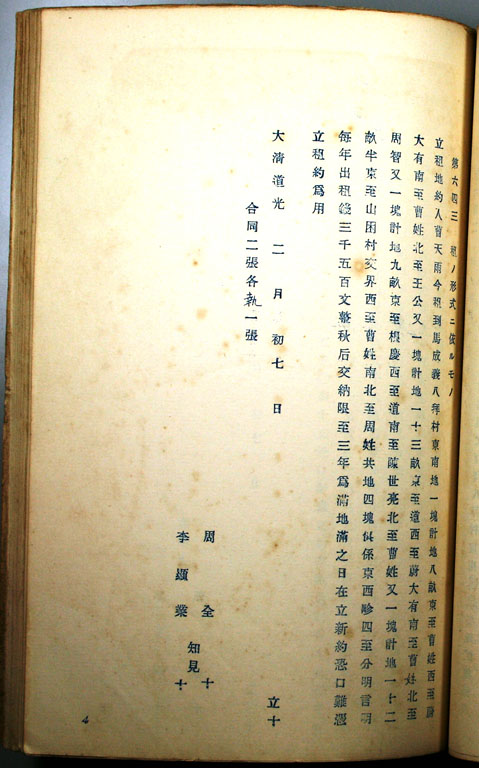 第六四三　租ノ形式ニ依ルモノ
立租地約人曹天雨今租到馬成義八拜村東南地一塊計地八畝東至曹姓西至
大有南至曹姓北至王公又一塊計地一十三畝東至道西至蔚大有南至曹姓北至
周智又一塊計地九畝東至根慶西至道南至陳世亮北至曹姓又一塊計地一十二
畝半京至山困村交界西至曹姓南北至周姓共地四塊俱係京西畛四至分明言明
每年出租錢三千五百文整秋后交納限至三年為滿地滿之日在立新約恐口難憑
立租約為用
大清道光　二月　初七日
合同二張各執一張
立十
周全十
知見
李顯業十
4